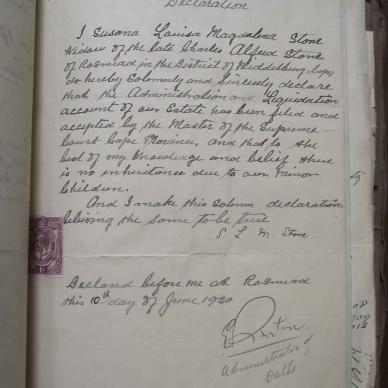 Declaration
I Susana Louisa Magdalena Stone
Widow of the late Charles Alfred Stone
of Rosmead in the District of Middelburg Cape
do hereby Solemnly and Sincerely declare
that the Administration and Liquidation
account of our Estate has been filed and
accepted by the Master of the Supreme
Court Cape Province. And that to the
best of my knowledge and belief there
is no inheritance due to our minor
Children.
And I make this solemn declaration
believing the same to be true
S L M Stone
Declared before me at Rosmead
this 10th day of June 1920
Administrator of
Oaths